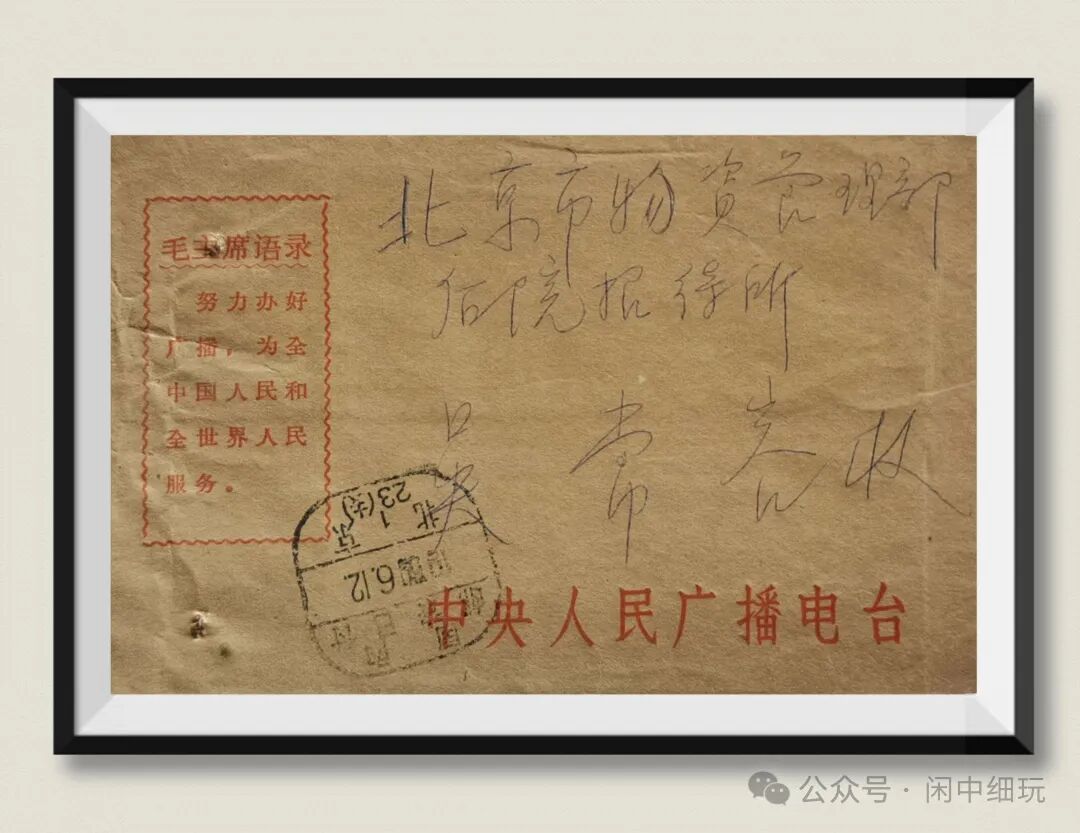 毛主席语录
努力办好
广播，为全
中国人民和
全世界人民
服务。
北京市物资管理部
后院招待所
吴常岩收
北京
1
23(支)
6.12
国内邮资已付
中央人民广播电台
公众号·闲中细玩